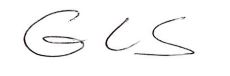 G L S